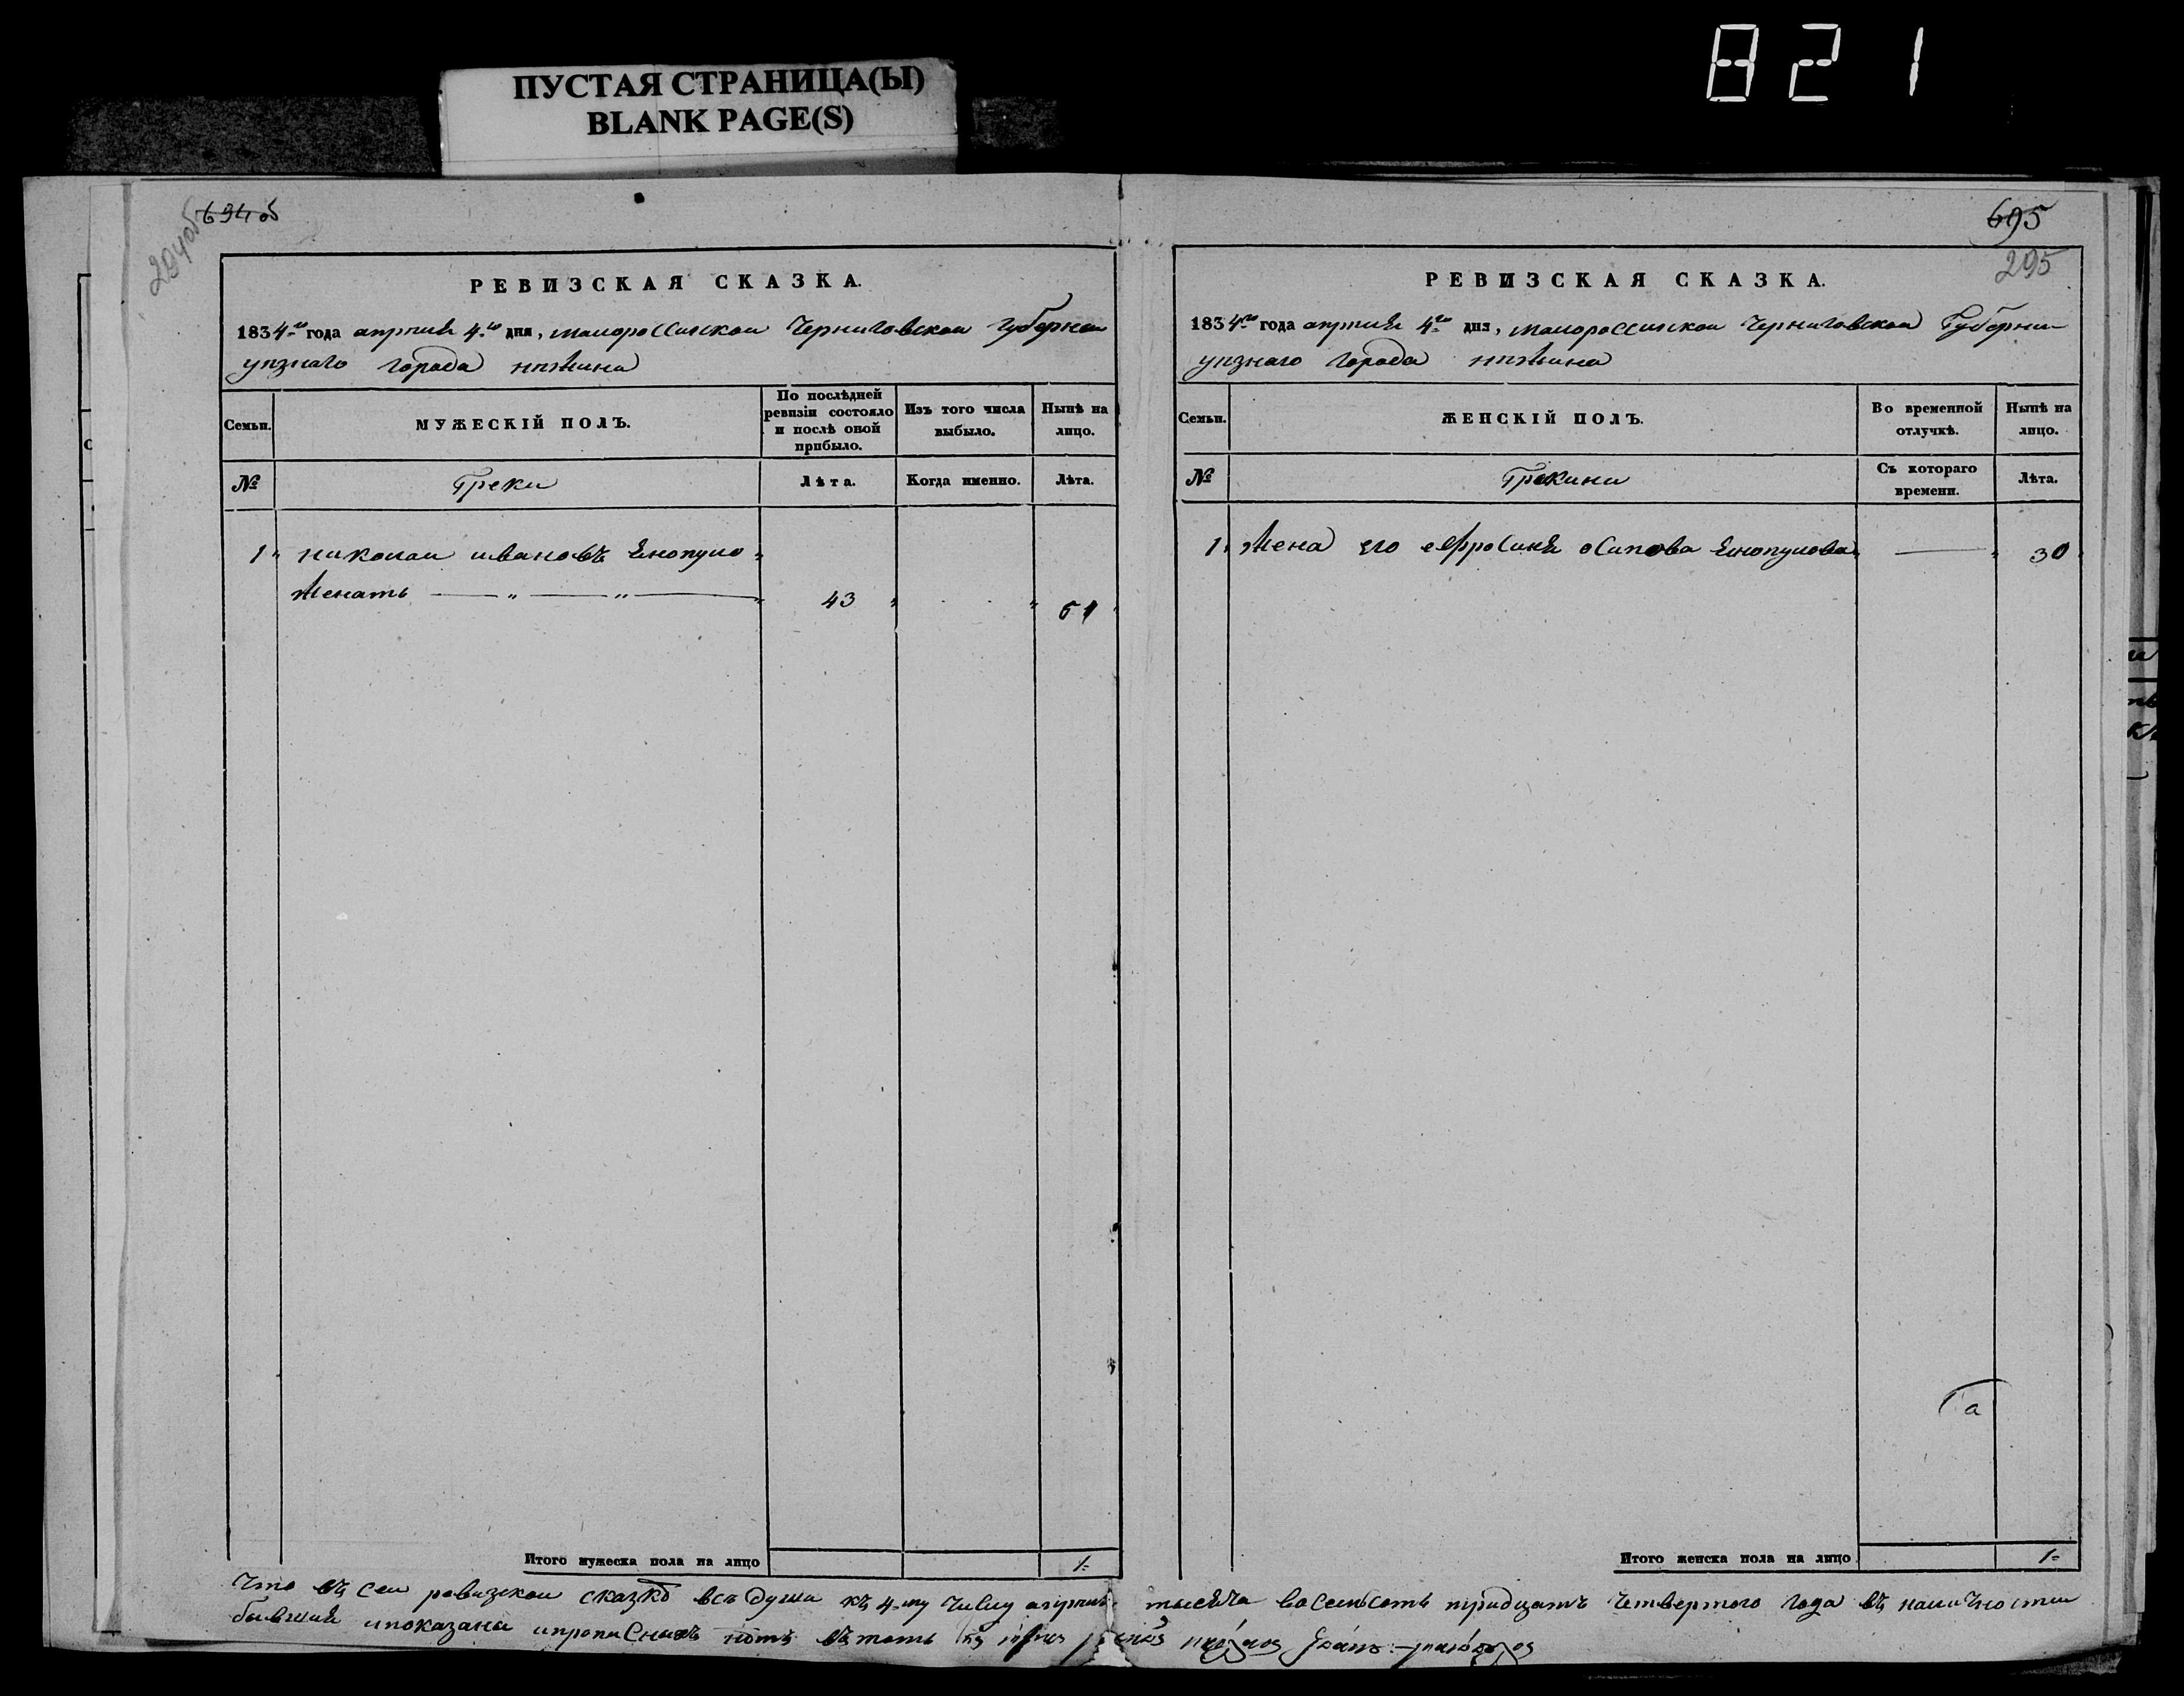 ПУСТАЯ СТРАНИЦА(Ы)
BLANK PAGE(S)
821
694 об
294 об
РЕВИЗСКАЯ СКАЗКА.
1834го года апреля 4го дня, малороссийской Черниговской Губернии
уезнаго города нежина
Семьи.
МУЖЕСКІЙ ПОЛЪ.
По послѣдней ревизіи состояло и послѣ оной прибыло.
Изъ того числа выбыло.
Нынѣ на лицо.
№
Греки
Лѣта.
Когда именно.
Лѣта.
1 николаи ивановъ
женатъ 43 61
Итого мужеска пола на лицо 1
695
295
РЕВИЗСКАЯ СКАЗКА.
1834го года апреля 4го дня, малороссийской Черниговской Губернии
уезнаго города нежина
Семьи.
ЖЕНСКІЙ ПОЛЪ.
Во временной отлучкѣ.
Нынѣ на лицо.
№
Грекини
Съ котораго времени.
Лѣта.
1 Жена его ефросиня осипова 30
а
Итого женска пола на лицо 1
Что въ сеи ревизскои сказкѣ всѣ души къ 4му числу апреля тысяча восемьсотъ тридцать четвертого года въ наличности
бывшия и показаны и прописныхъ нѣтъ въ томъ